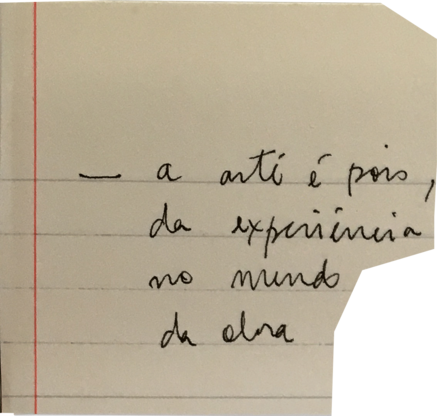 — a arte é pois,
da experiência
no mundo
da obra